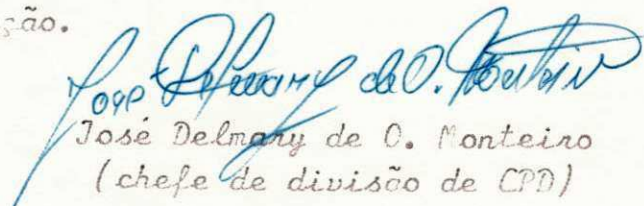 ção.
José Delmary de O. Monteiro
José Delmary de O. Monteiro
(chefe de divisão de CPD)